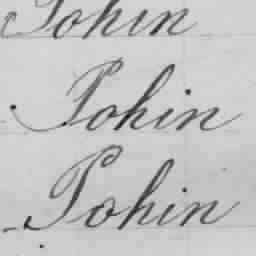 Pohin
Pohin
Pohin